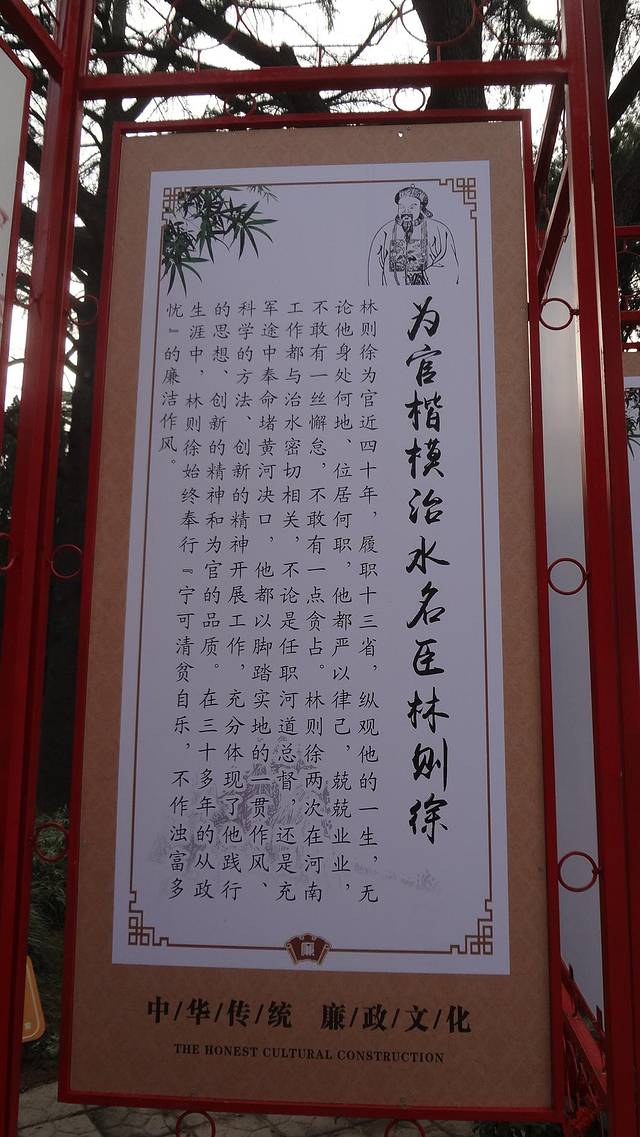 为官楷模治水名臣林则徐
林则徐为官近四十年，履职十三省，纵观他的一生，无
论他身处何地、位居何职，他都严以律己，兢兢业业，
不敢有一丝懈怠，不敢有一点贪占。林则徐两次在河南
工作都与治水密切相关，不论是任职河道总督，还是充
军途中奉命堵黄河决口，他都以脚踏实地的一贯作风、
科学的方法、创新的精神开展工作，充分体现了他践行
的思想、创新的精神和为官的品质。在三十多年的从政
生涯中，林则徐始终奉行『宁可清贫自乐，不作浊富多
忧』的廉洁作风。
廉
中/华/传/统 廉/政/文/化
THE HONEST CULTURAL CONSTRUCTION